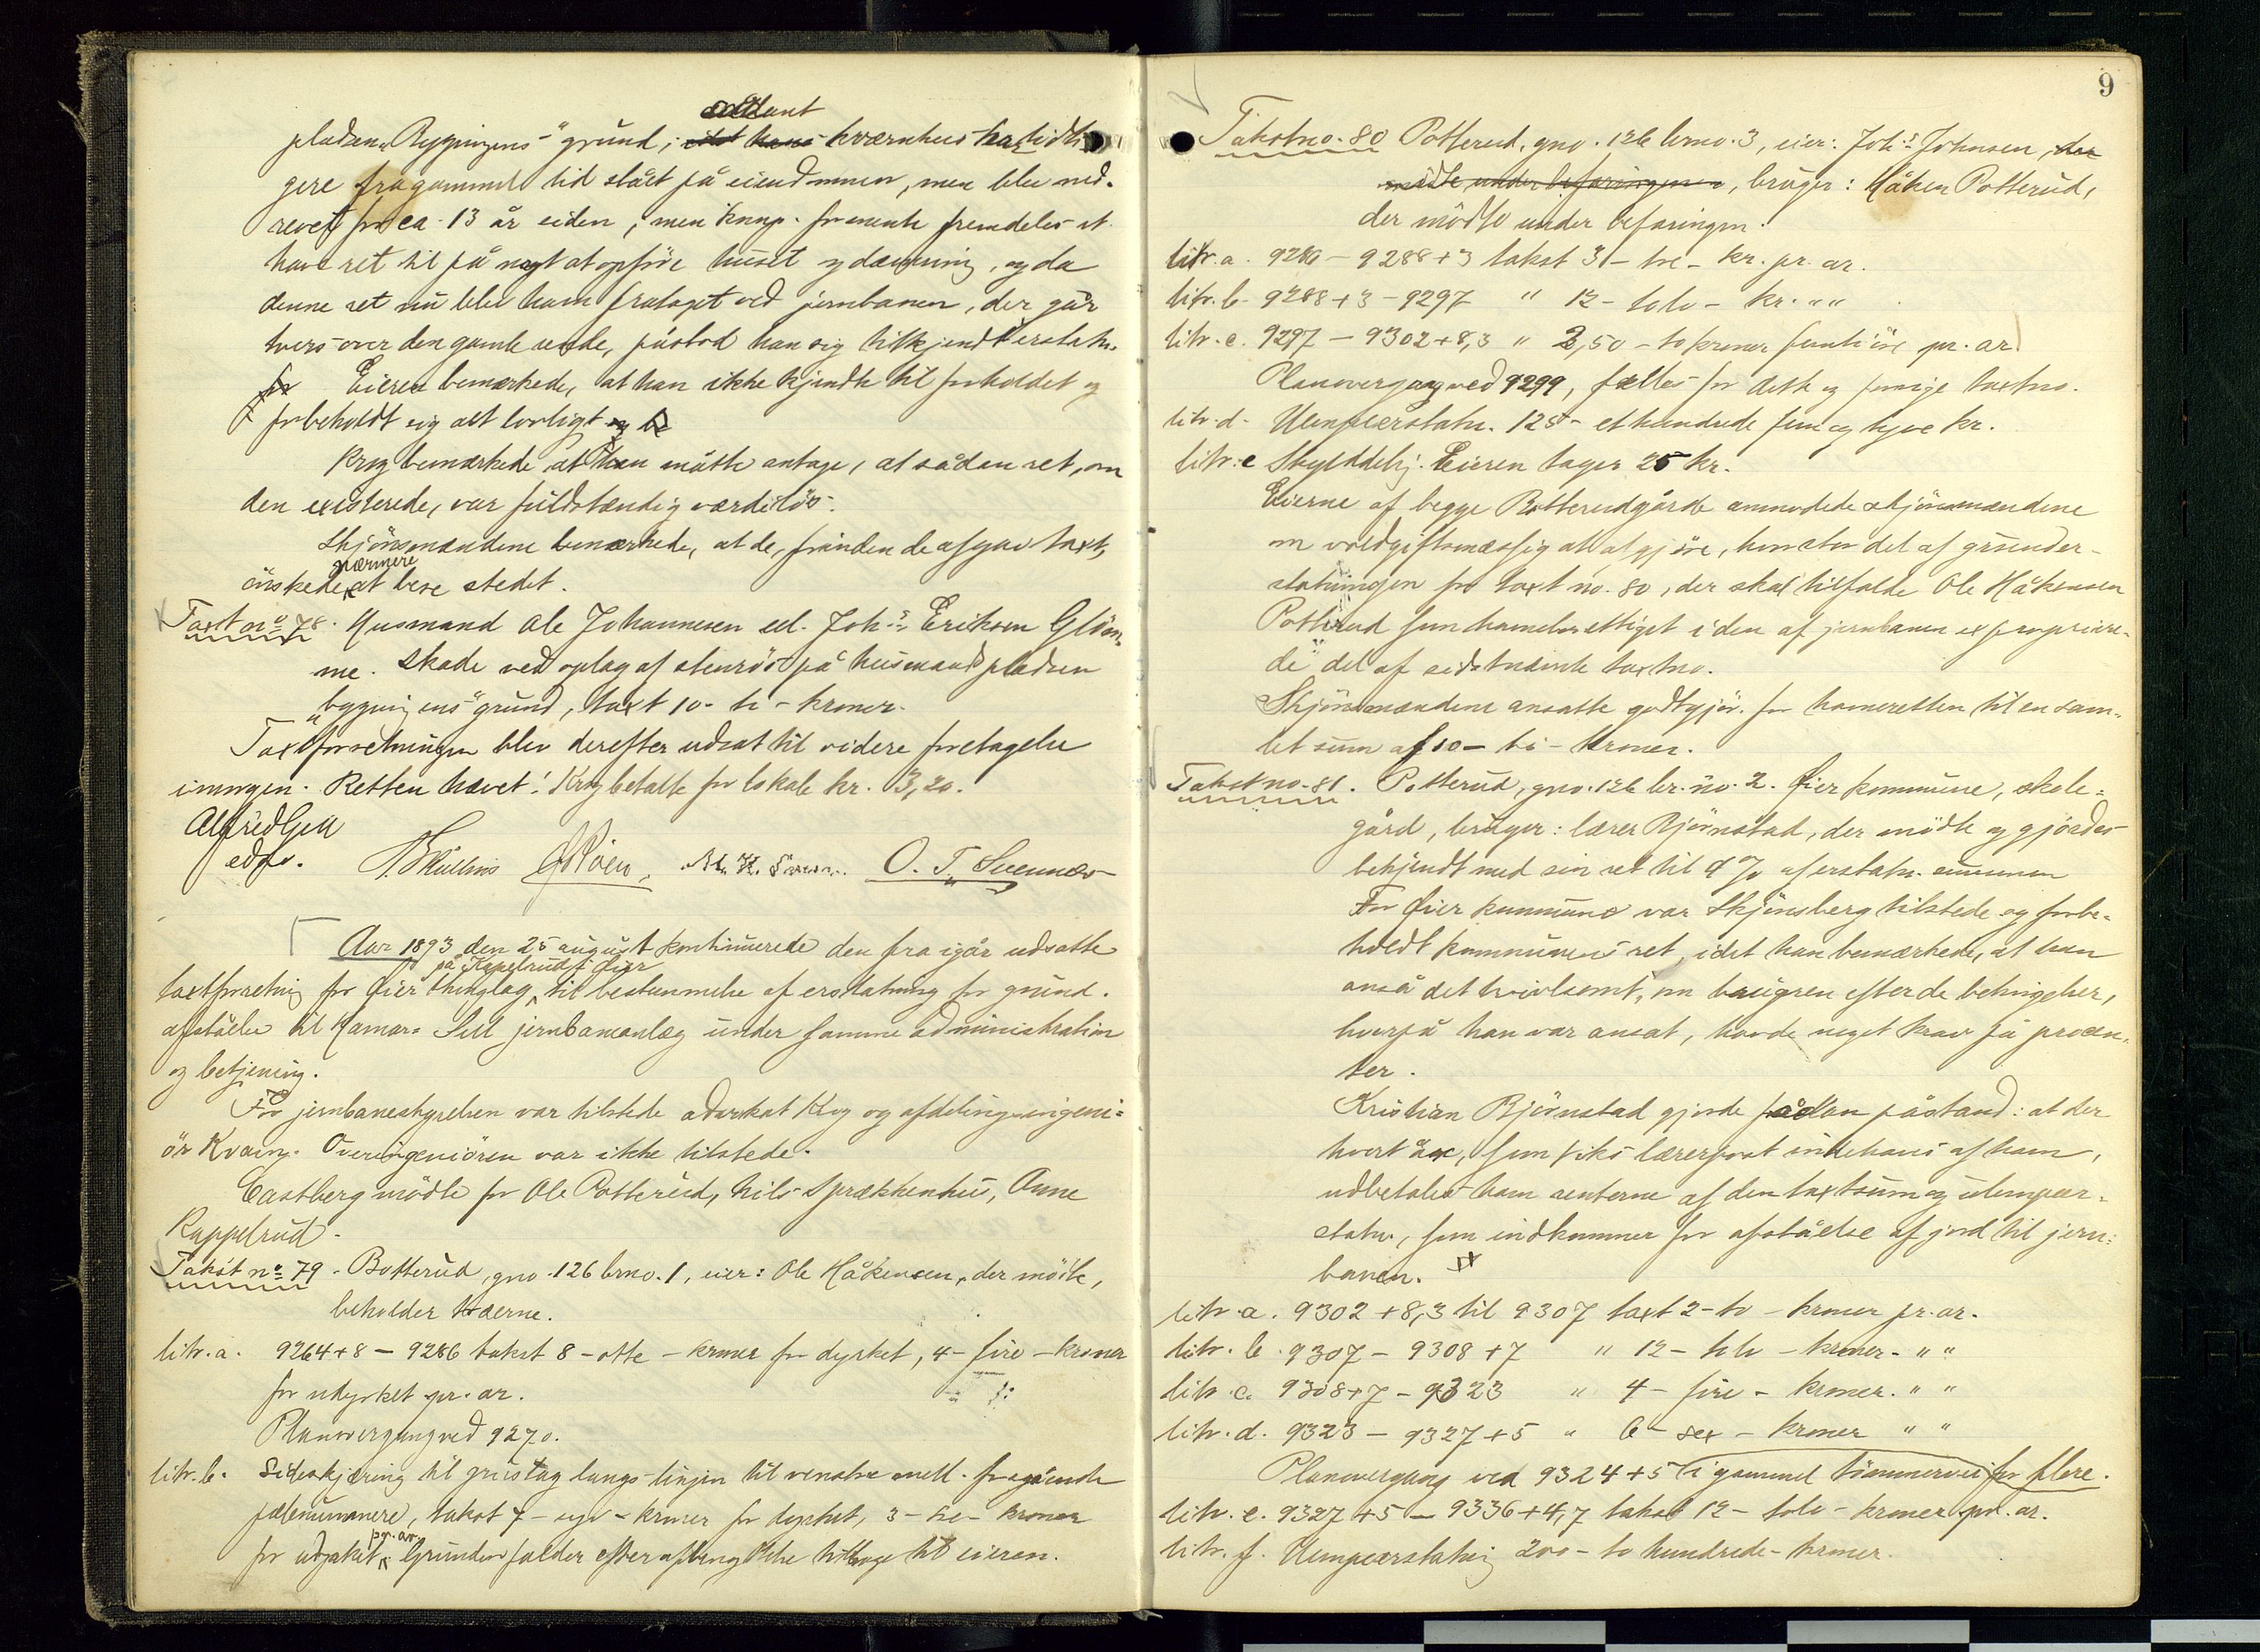 saadant
pladsen "Bygningens" grund; kværnhus har tidli
gere fra gammel tid stået på eiendommen, men blev ned-
revet for ca. 13 år siden, men formente fremdeles at
have ret til på nyt at opføre huset og dæmning, og da
denne ret nu blev ham frataget ved jernbanen, der går
tvers over den gamle , påstod han sig tilkjendt erstatn.
Eieren bemærkede, at han ikke kjendte til forholdet og
forbeholdt sig alt lovligt
Krog bemærkede at han måtte antage, at sådan ret, om
den existerede, var fuldstændig værdiløs.
Skjønsmændene bemærkede, at de, førinden de afgav taxt,
nærmere
ønskede at bese stedet.
Taxt no 78. Husmand Ole Johannesen eel. Johs. Eriksen Glöm-
me. Skade ved oplag af stenrös på husmandspladsen
"bygningens" grund, taxt 10 - ti - kroner.
Taxtforretningen blev derefter udsat til videre foretagelse
imorgen. Retten hævet! Krog betalte for lokale kr. 3,20.
Alfred
edsv. O. T. Svennæs
Aar 1893 den 25 august kontinuerede den fra igår udsatte
på Kapelrud i Øier
taxtforretning for Øier thinglag til bestemmelse af erstatning for grund-
afståelse til Hamar-Sell jernbaneanlæg under samme administration
og betjening.
For jernbanestyrelsen var tilstede advokat Krog og afdelingsingeni-
ör Kvam. Overingeniören var ikke tilstede.
Castberg mödte for Ole Potterud, Nils Sprækkenhus, Anne
Kappelrud.
Takst no 79. Botterud, gno. 126 brno. 1, eier: Ole Håkensen, der mödte,
beholder træerne.
litr. a. 9264+8 - 9286 takst 8 - otte - kroner for dyrket, 4 - fire - kroner
for udyrket pr. ar.
Planovergang ved 9270.
litr. b. Sideskjæring til grustag langs linjen til venstre mell. foregående
pælenummere, takst 7 - syv - kroner for dyrket, 3 - tre - kroner
pr. ar.
for udyrket. Grunden falder efter afbenyttelse tilbage til eieren.
9
Takst no. 80 Potterud, gno. 126 brno. 3, eier: Johs. Johnsen, der
mødte under befaringen, bruger: Håken Potterud,
der mödte under befaringen.
litr. a. 9286 - 9288+3 takst 3 - tre - kr. pr. ar.
litr. b. 9288+3 - 9297 " 12 - tolv - kr. " "
litr. c. 9297 - 9302+8,3 " 2,50 - to kroner femti öre pr. ar.
Planovergang ved 9299, fælles for dette og forrige taxtno.
litr. d. Ulempeerstatn. 125 - et hundrede fem og tyve kr.
litr. e Skylddelsj. Eieren tager 25 kr.
Eierne af begge Botterudgårde anmodede skjönsmændene
om voldgiftsmæssig at afgjöre, hvor stor del af grunder-
statningen for taxt no. 80, der skal tilfalde Ole Håkensen
Potterud som havneberettiget i den af jernbanen expropriere-
de del af sidstnævnte taxtno.
Skjönsmændene ansatte godtgjör. for havneretten til en sam-
let sum af 10 - ti - kroner.
Takst no. 81. Potterud, gno. 126 br. no. 2. Øier kommune, skole-
gård, bruger: lærer Bjørnstad, der mödte og gjordes
bekjendt med sin ret til 4 % af erstatn. summen
For Øier kommune var Skjönsberg tilstede og forbe-
holdt kommunens ret, idet han bemærkede, at han
anså det tvivlsomt, om brugeren efter de betingelser,
hvorpå han var ansat, havde noget krav på procen-
ter.
Kristian Bjørnstad gjorde sådan påstand: at der
hvert år, som lærerpost indehaves af ham,
udbetales ham renterne af den taxtsum og ulempeer-
statn., som indkommer for afståelse af jord til jern-
banen.
litr. a. 9302+8,3 til 9307 taxt 2 - to - kroner pr. ar.
litr. b. 9307 - 9308+7 " 12 - tolv - kroner - " "
litr. c. 9308+7 - 9323 " 4 - fire - kroner. " "
litr. d. 9323 - 9327+5 " 6 - sex - kroner " "
Planovergang ved 9324+5 i gammel tömmervei for flere.
litr. e. 9327+5 - 9336+4,7 takst 12 - tolv - kroner pr. ar.
litr. f. Ulempeerstatning 200 - to hundrede - kroner.